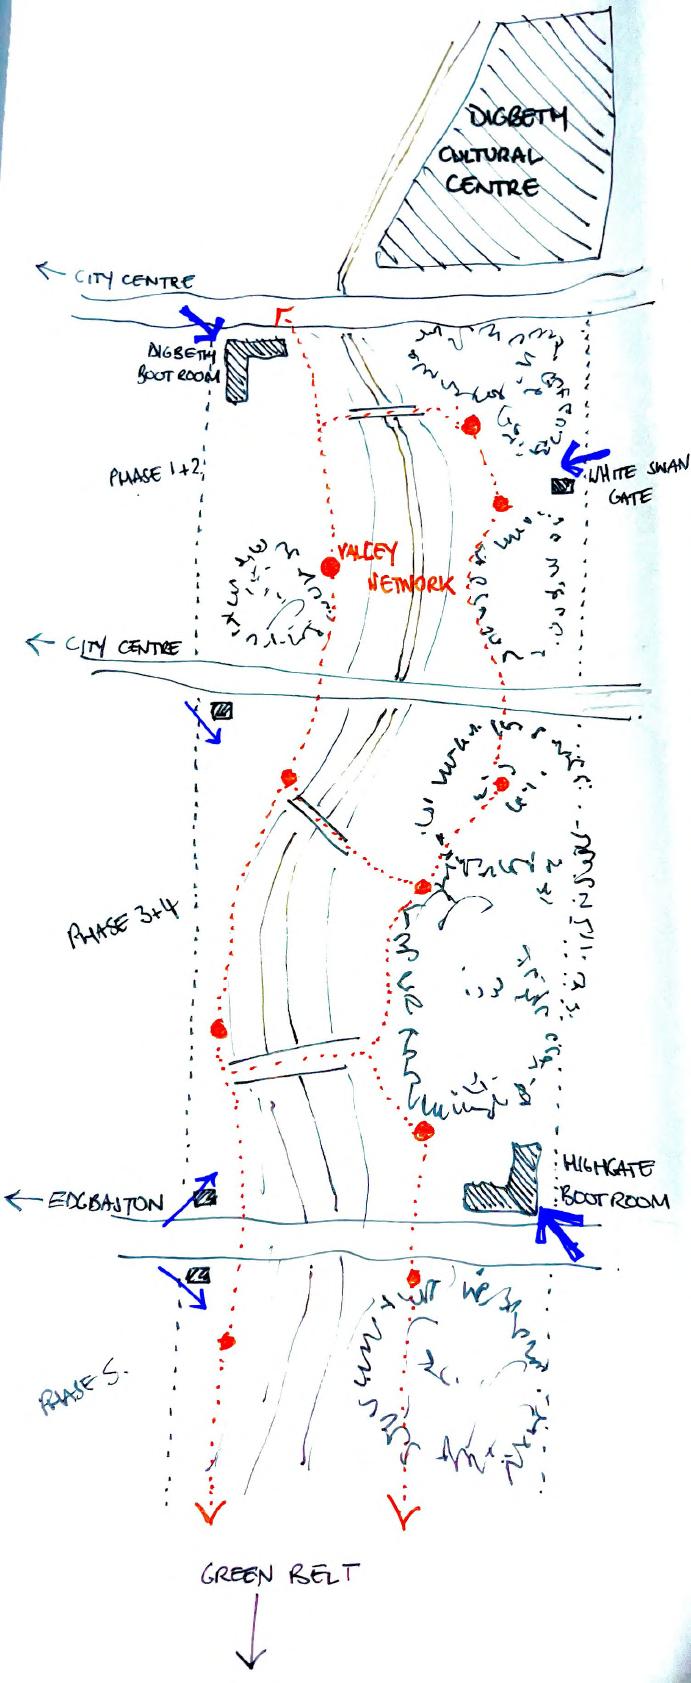 DIGBETH
CULTURAL
CENTRE
← CITY CENTRE
DIGBETH
BOOT ROOM
PHASE 1+2
WHITE SWAN
GATE
VALLEY
NETWORK
← CITY CENTRE
PHASE 3+4
HIGHGATE
BOOT ROOM
← EDGBASTON
PHASE 5.
GREEN BELT